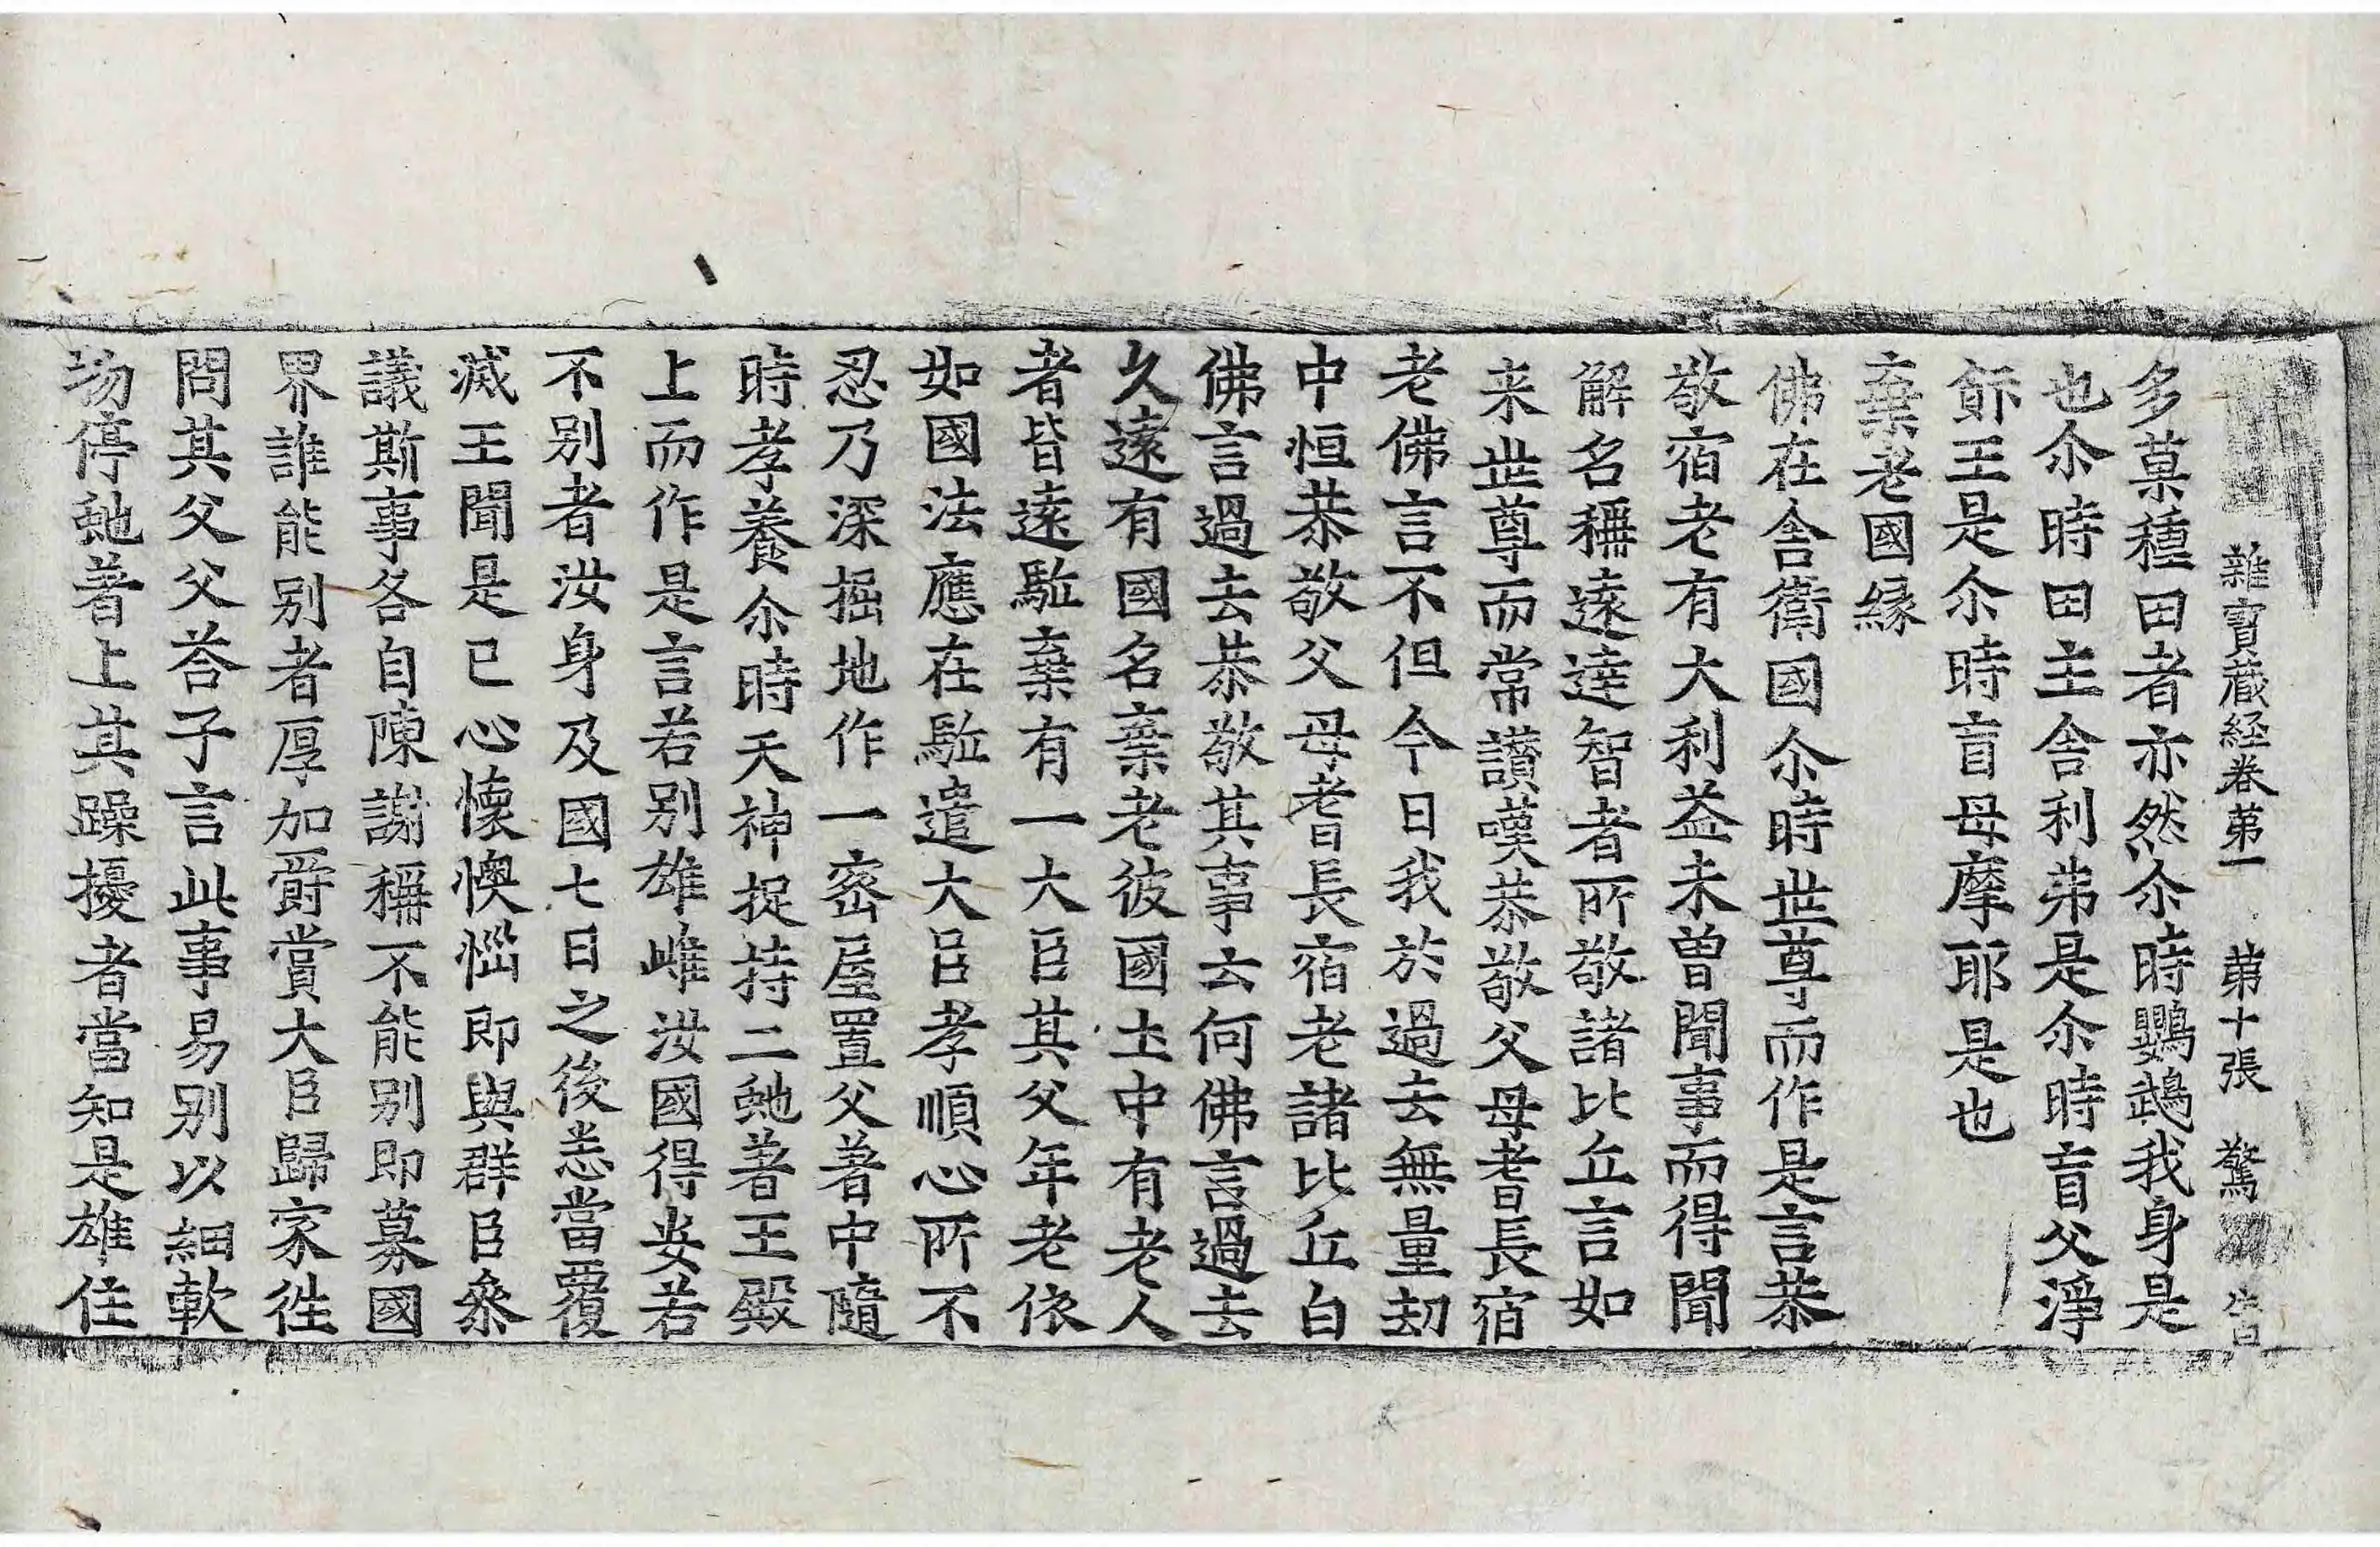 雜寶蔵経卷第一 第十張 驚
多菓種田者亦然尒時鸚鵡我身是
也尒時田主舍利弗是尒時盲父淨
飰王是尒時盲母摩耶是也
棄老國緣
佛在舍衞國尒時世尊而作是言恭
敬宿老有大利益未曽聞事而得聞
解名稱遠達智者所敬諸比丘言如
来世尊而常讃嘆恭敬父母耆長宿
老佛言不但今日我於過去無量刧
中恒恭敬父母耆長宿老諸比丘白
佛言過去恭敬其事云何佛言過去
久遠有國名棄老彼國土中有老人
者皆遠駈棄有一大臣其父年老依
如國法應在駈遣大臣孝順心所不
忍乃深掘地作一宻屋置父著中隨
時孝養尒時天神捉持二虵著王殿
上而作是言若別雄雌汝國得安若
不別者汝身及國七日之後悉當覆
滅王聞是已心懷懊惱即與群臣叅
議斯事各自陳謝稱不能別即募國
界誰能別者厚加爵賞大臣歸家徃
問其父父荅子言此事易別以細軟
物停虵著上其躁擾者當知是雄住